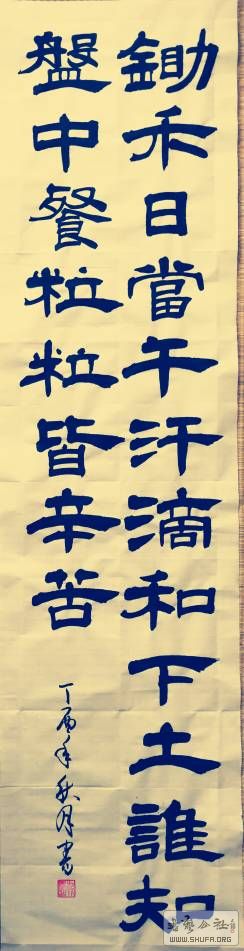 鋤禾日當午汗滴和下土誰知
盤中餐粒粒皆辛苦
丁酉年秋月書
书艺公社
WWW.SHUFA.ORG